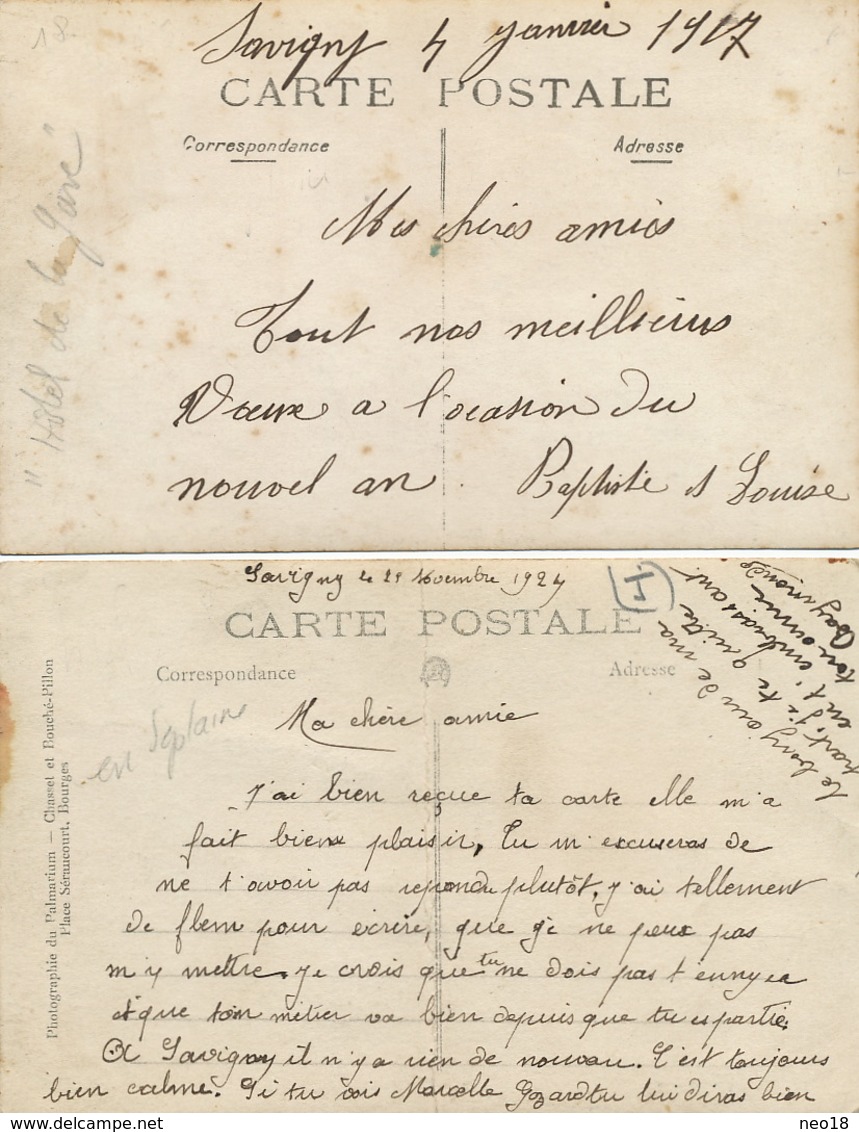 18
Savigny 4 janvier 1917
CARTE POSTALE
Correspondance
Adresse
"Hôtel de la Gare"
Mes chères amies
Tout nos meillieurs
Vœux a l'ocasion du
nouvel an. Baptiste et Louise
Savigny le 29 Novembre 1924
I
CARTE POSTALE
Correspondance
Adresse
en Septaine
Photographie du Palmarium — Chasset et Bouché-Pillon
Place Séraucourt, Bourges
Ma chère amie
J'ai bien reçue ta carte elle m'a
fait bien plaisir, Tu m'excuseras de
ne t'avoir pas repondu plutôt, j'ai tellement
de flem pour écrire, que je ne peux pas
m'y mettre. je crois que tu ne dois pas t'ennyea
et que ton métier va bien depuis que tu es partie.
A Savigny il n'y a rien de nouveau. C'est toujours
bien calme. Si tu vois Marcelle tu lui diras bien
le bonjour de ma
part, je te quitte
en t'embrassant
ton amie
Raymonde
neo18